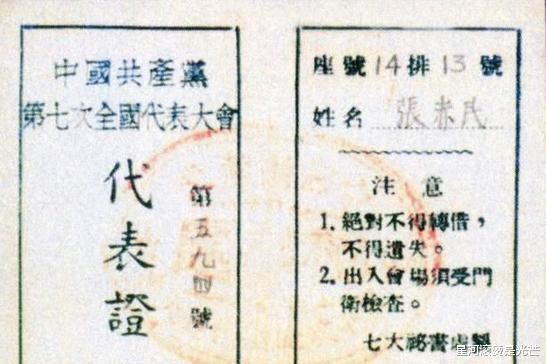 中國共產黨
第七次全國代表大會
代表證
第五九四號
座號14排13號
姓名 張赤民
注意
1. 絕對不得轉借，
不得遺失。
2. 出入會場須受門
衛檢查。
七大祕書處製
星河滚烫是光芒